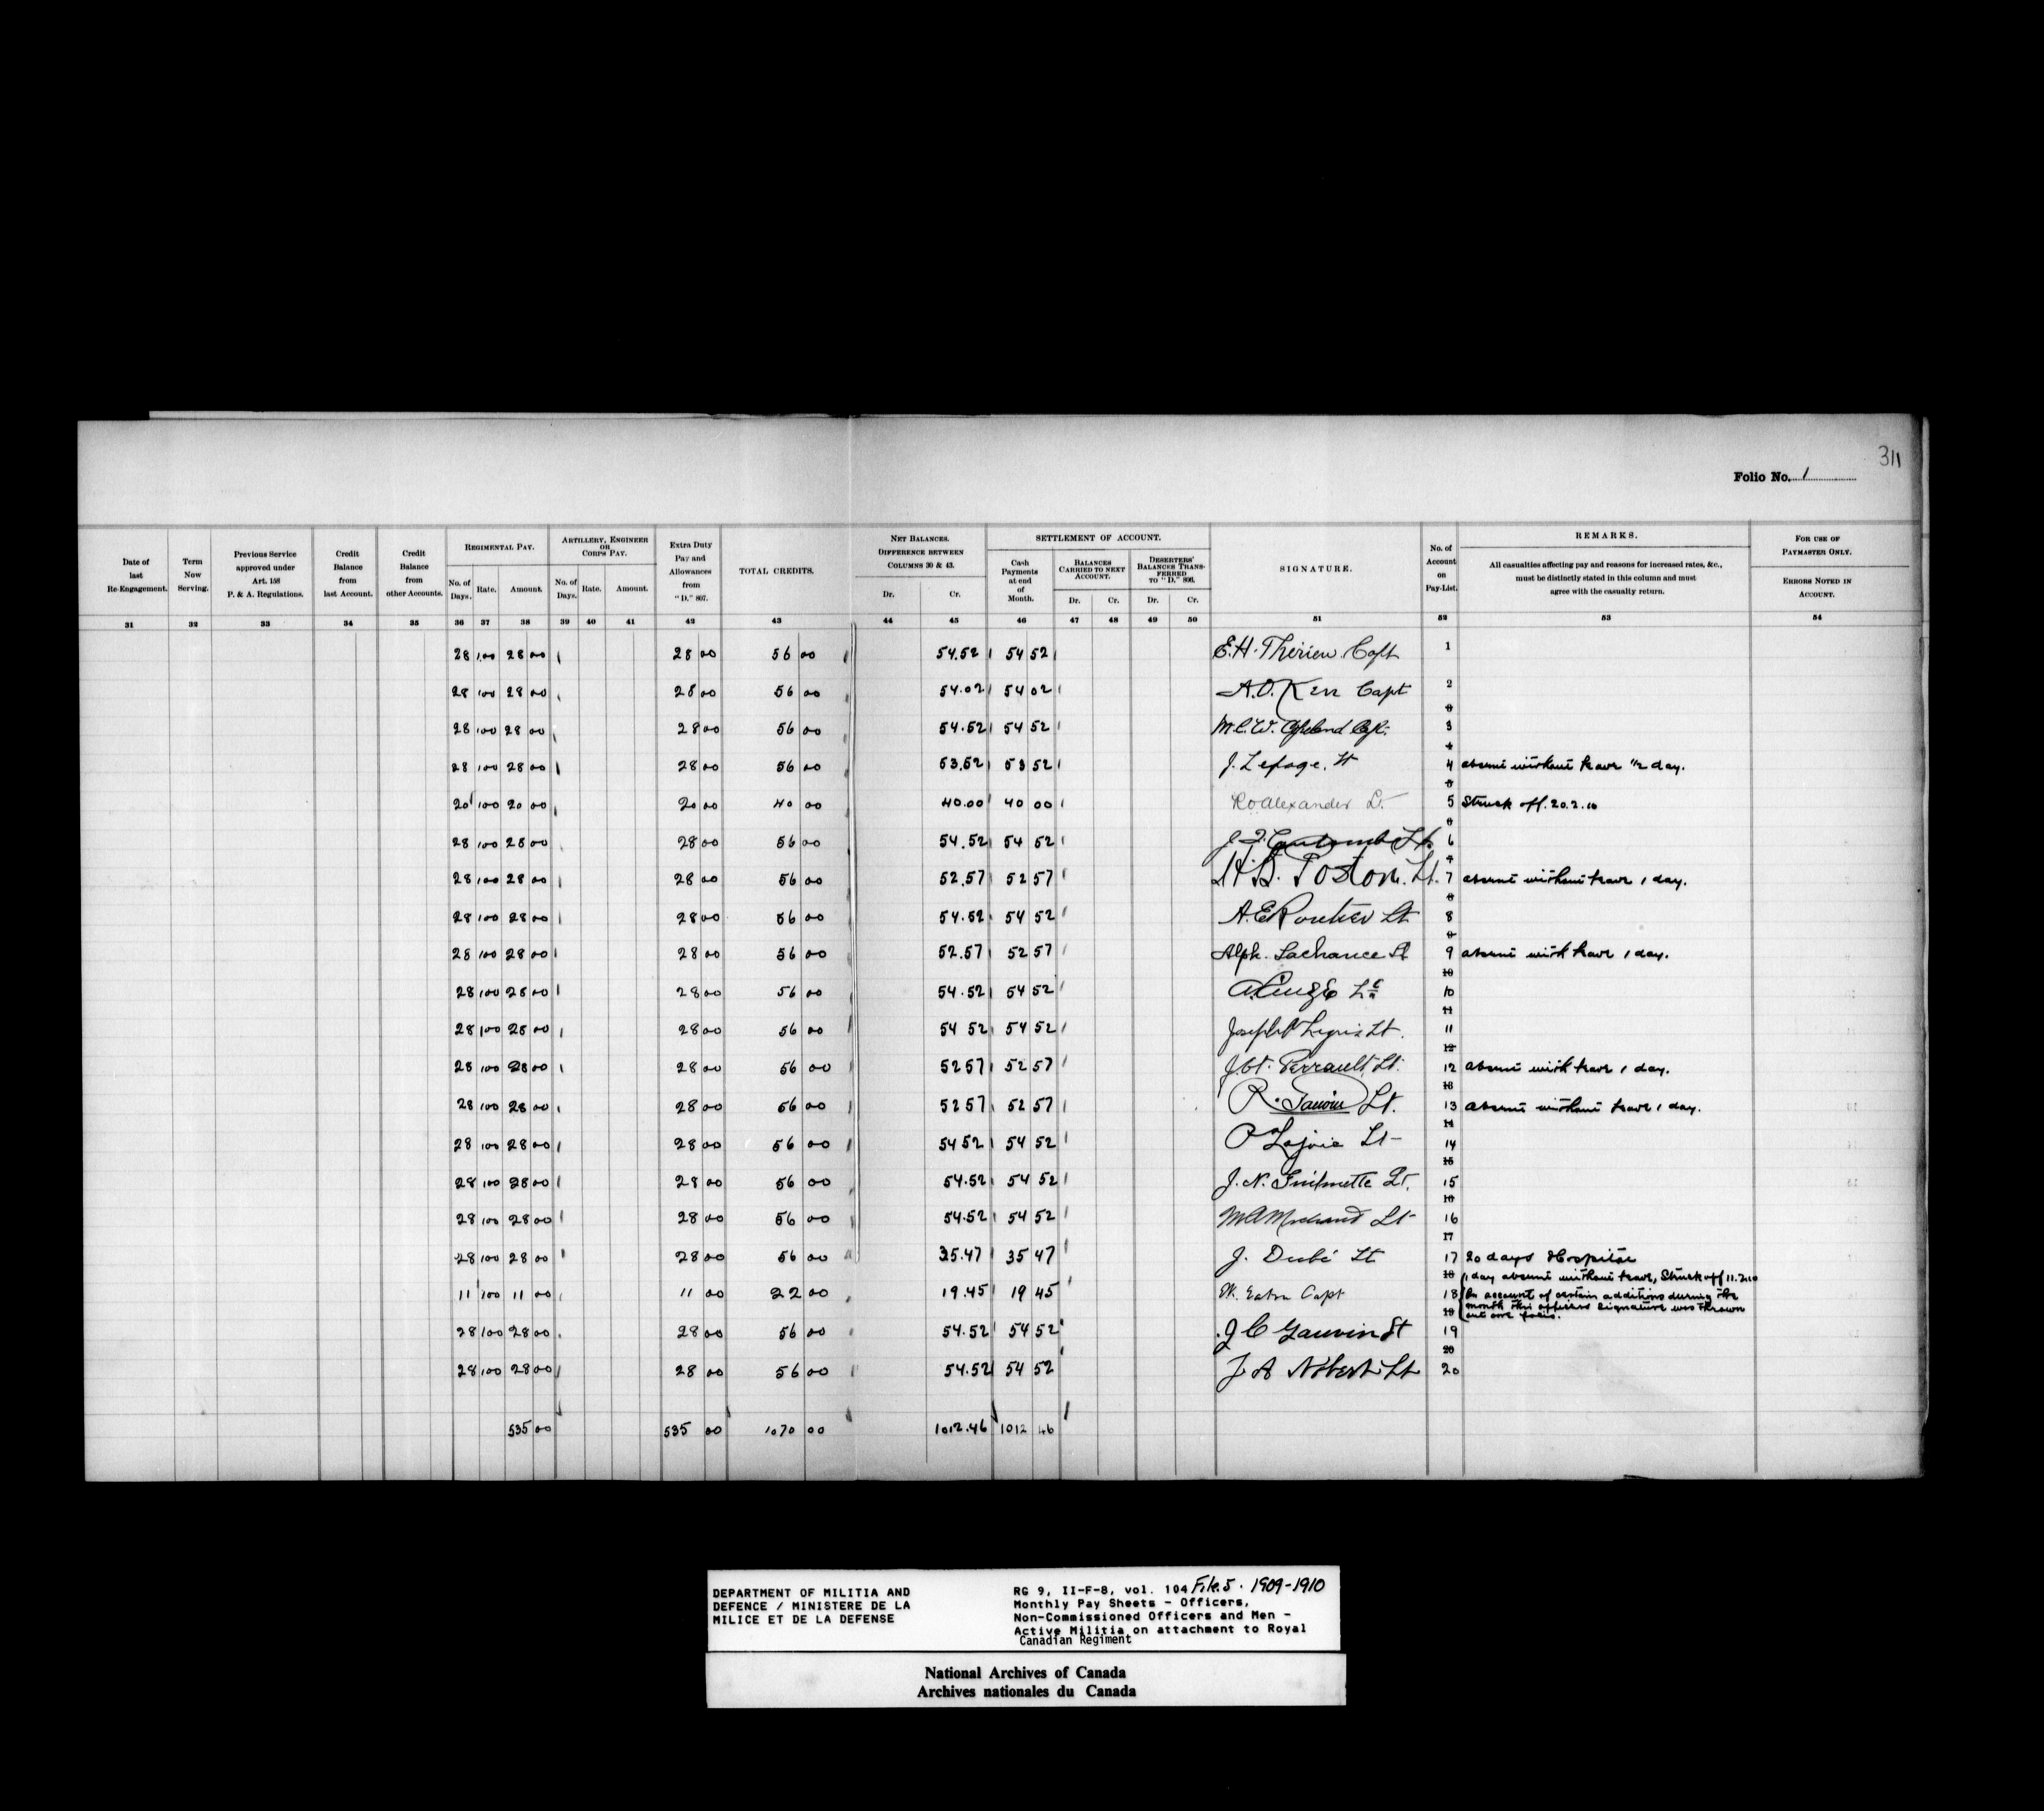 311
Folio No. 1
Date of last Re-Engagement. Term Now Serving. Previous Service approved under Art. 158 P. & A. Regulations. Credit Balance from last Account. Credit Balance from other Accounts. REGIMENTAL PAY. No. of Days. Rate. Amount. ARTILLERY, ENGINEER OR CORPS PAY. No. of Days. Rate. Amount. Extra Duty Pay and Allowances from "D." 807. TOTAL CREDITS. NET BALANCES. DIFFERENCE BETWEEN COLUMNS 30 & 43. Dr. Cr. SETTLEMENT OF ACCOUNT. Cash Payments at end of Month. BALANCES CARRIED TO NEXT ACCOUNT. Dr. Cr. DESERTERS' BALANCES TRANSFERRED TO "D." 806. Dr. Cr. SIGNATURE. No. of Account on Pay-List. REMARKS. All casualties affecting pay and reasons for increased rates, &c., must be distinctly stated in this column and must agree with the casualty return. FOR USE OF PAYMASTER ONLY. ERRORS NOTED IN ACCOUNT.
31 32 33 34 35 36 37 38 39 40 41 42 43 44 45 46 47 48 49 50 51 52 53 54
28 1.00 28 00 28 00 56 00 54.52 54 52 E. H. Therien Capt 1
28 100 28 00 28 00 56 00 54.02 54 02 A. O. Kerr Capt 2
28 100 28 00 28 00 56 00 54.52 54 52 M. C. W. 3
28 100 28 00 28 00 56 00 53.52 53 52 J. Lepage. Lt 4 absent without leave 1/2 day.
20 100 20 00 20 00 40 00 40.00 40 00 Ro Alexander Lt. 5 Struck off. 20.2.10
28 100 28 00 28 00 56 00 54.52 54 52 Lt. 6
28 100 28 00 28 00 56 00 52.57 52 57 H. B. Poston. Lt. 7 absent without leave 1 day.
28 100 28 00 28 00 56 00 54.52 54 52 A. E. Routier Lt 8
28 100 28 00 28 00 56 00 52.57 52 57 Alph. Lachance Lt 9 absent with leave 1 day.
28 100 28 00 28 00 56 00 54.52 54 52 Lt 10
28 100 28 00 28 00 56 00 54 52 54 52 Joseph Lt. 11
28 100 28 00 28 00 56 00 52 57 52 57 Perrault Lt. 12 absent with leave 1 day.
28 100 28 00 28 00 56 00 52 57 52 57 R. Lt. 13 absent without leave 1 day.
28 100 28 00 28 00 56 00 54 52 54 52 P Lajoie Lt 14
28 100 28 00 28 00 56 00 54.52 54 52 J. N. Guilmette Lt. 15
28 100 28 00 28 00 56 00 54.52 54 52 Lt 16
28 100 28 00 28 00 56 00 35.47 35 47 J. Dubé Lt 17 20 days Hospital
11 100 11 00 11 00 22 00 19.45 19 45 W. Eaton Capt 18 1 day absent without leave, Struck off 11.2.10
On account of certain additions during the
month this officers signature was thrown
out one folio.
28 100 28 00 28 00 56 00 54.52 54 52 J C Gauvin Lt 19
28 100 28 00 28 00 56 00 54.52 54 52 J. A Nobert Lt 20
535 00 535 00 1070 00 1012.46 1012 46
DEPARTMENT OF MILITIA AND
DEFENCE / MINISTERE DE LA
MILICE ET DE LA DEFENSE
RG 9, II-F-8, vol. 104 File 5. 1909-1910
Monthly Pay Sheets - Officers,
Non-Commissioned Officers and Men -
Active Militia on attachment to Royal
Canadian Regiment
National Archives of Canada
Archives nationales du Canada